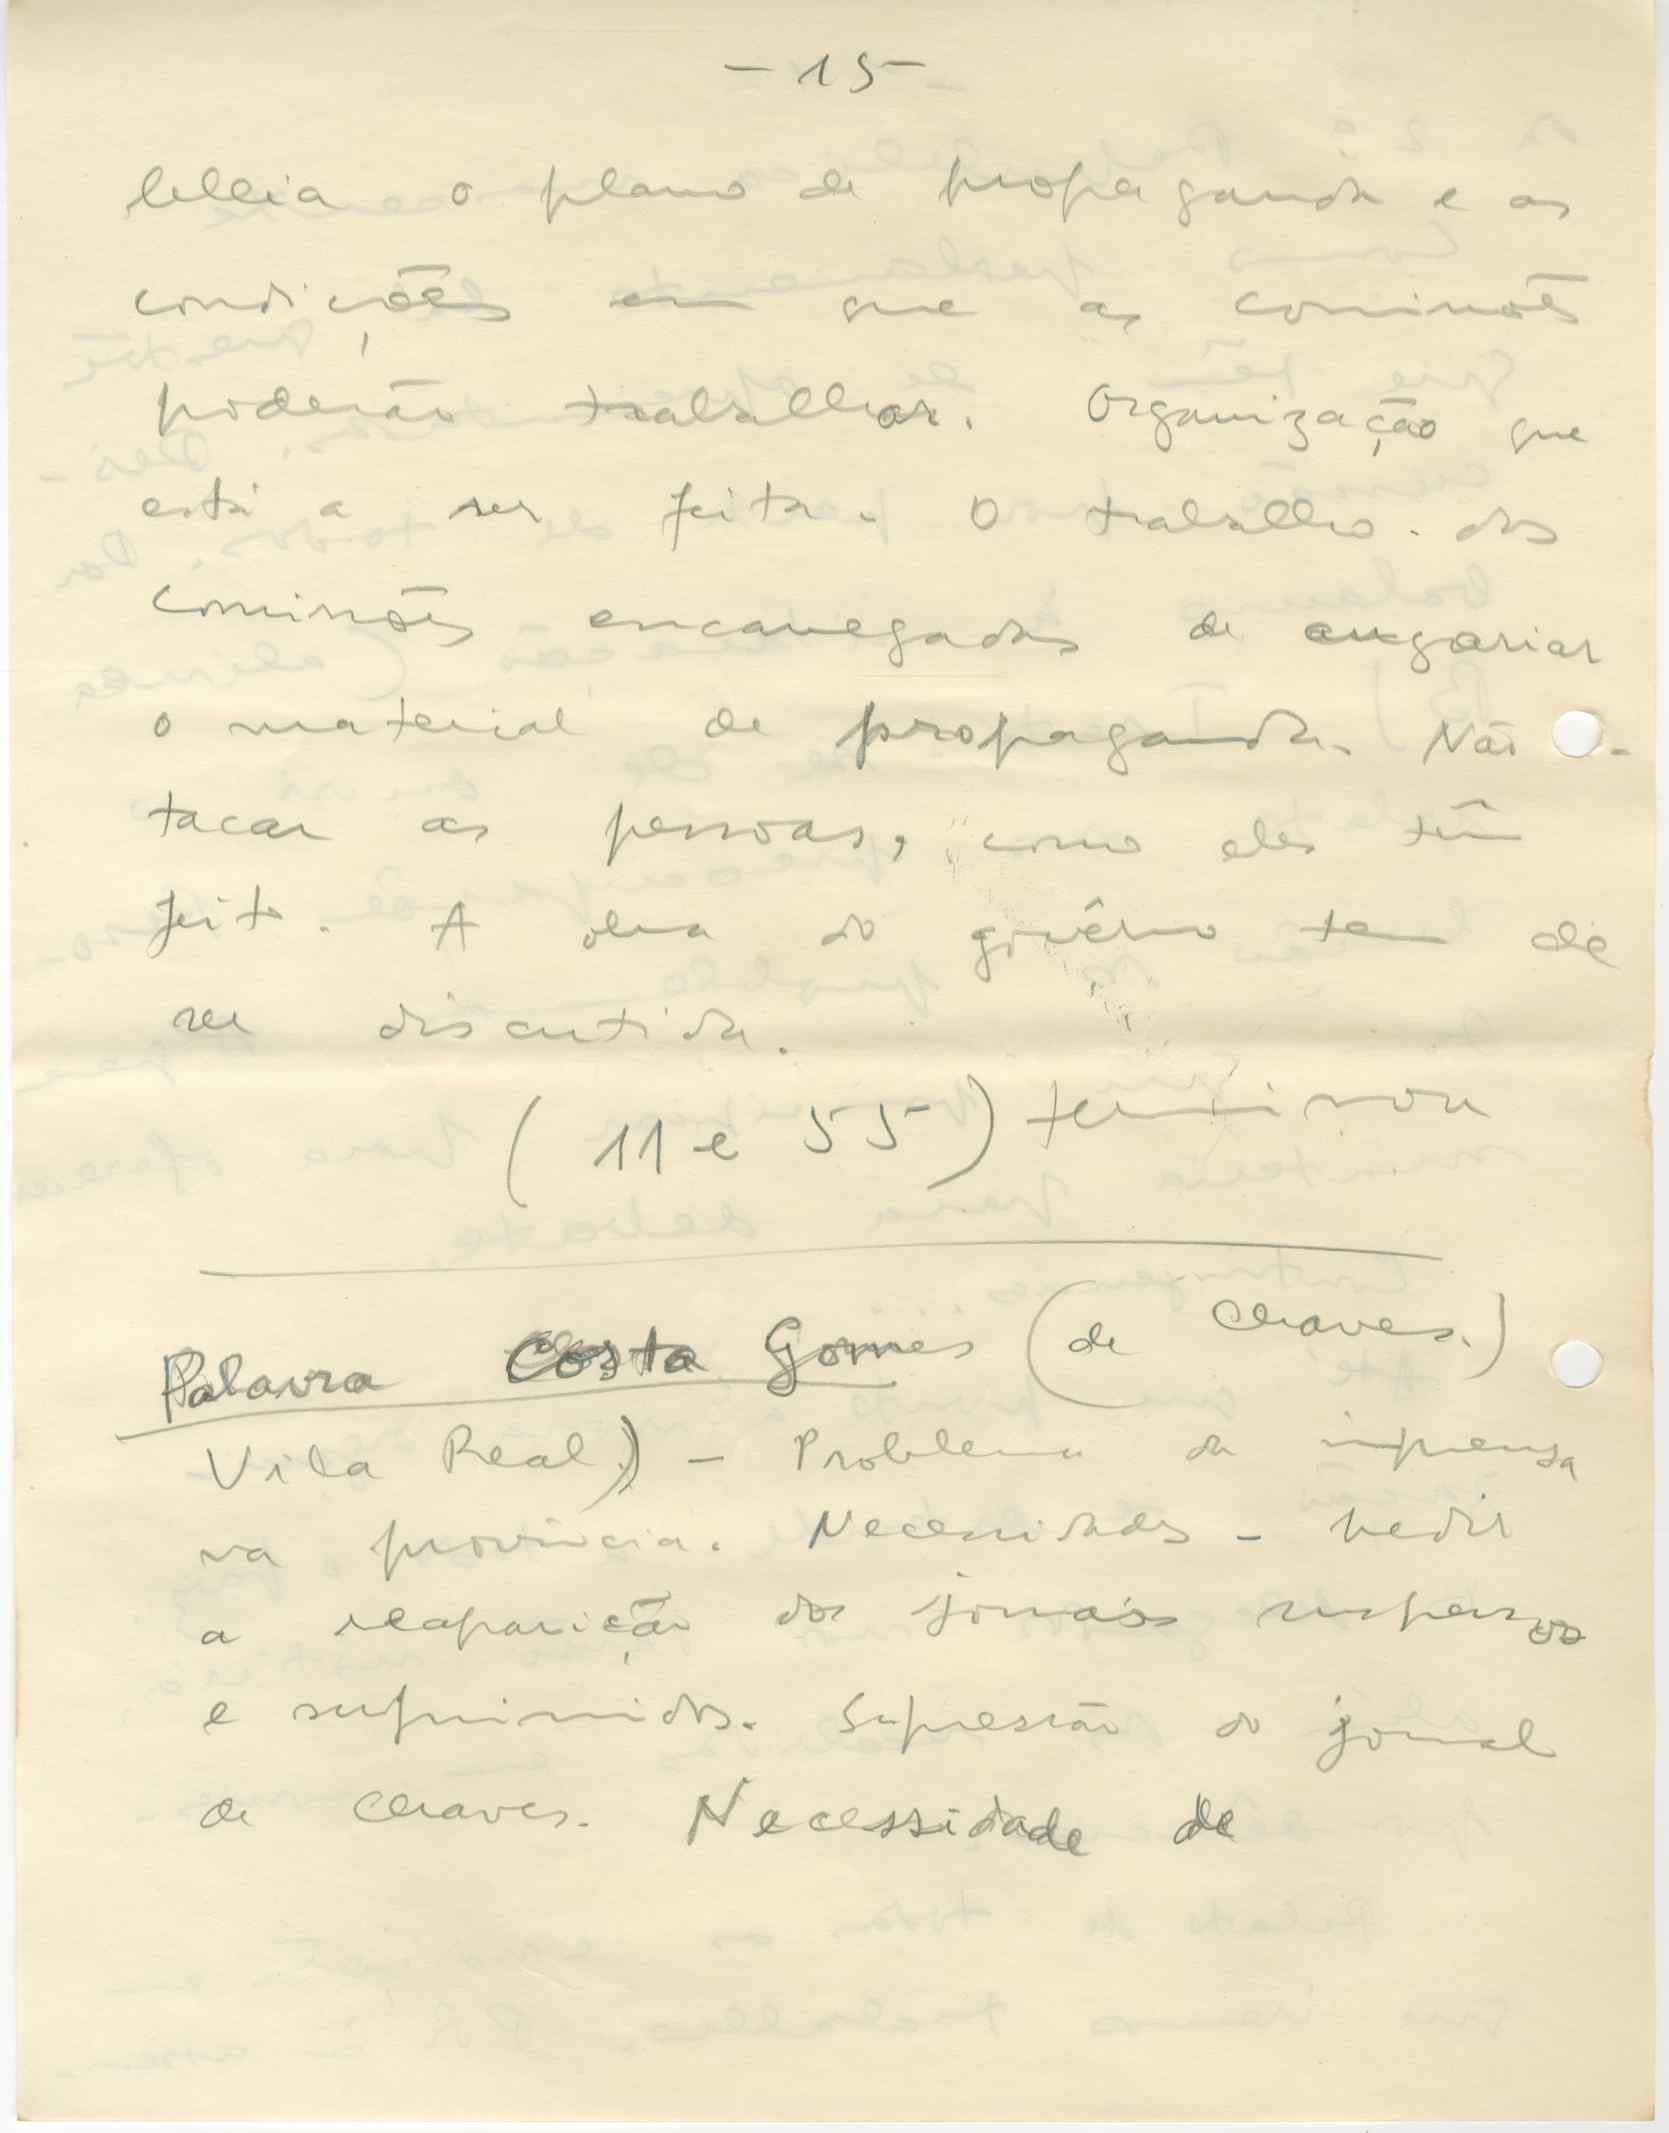 - 15 -
bleia o plano de propaganda e as
condições em que as comissões
poderão trabalhar. Organização que
está a ser feita. O trabalho das
comissões encarregadas de angariar
o material de propaganda. Não a-
tacar as pessoas, como eles têm
feito. A obra do govêrno tem de
ser discutida.
(11 e 55) terminou
Palavra Costa Gomes (de Chaves.)
Vila Real) - Problema da imprensa
na provincia. Necessidades - pedir
a reaparição dos jornais suspensos
e suprimidos. Supressão do jornal
de Chaves. Necessidade de